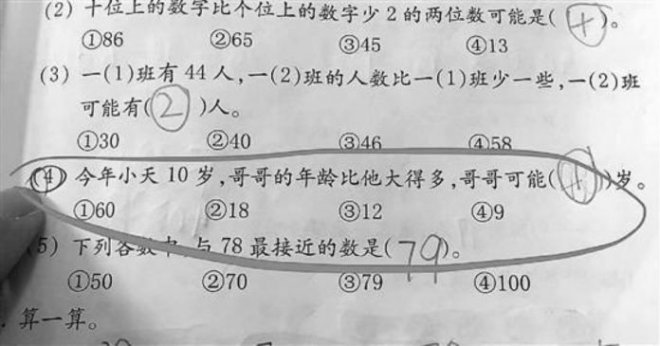 (2) 十位上的数字比个位上的数字少 2 的两位数可能是(4)。
①86 ②65 ③45 ④13
(3) 一(1)班有 44 人,一(2)班的人数比一(1)班少一些,一(2)班
可能有(2)人。
①30 ②40 ③46 ④58
(4) 今年小天 10 岁,哥哥的年龄比他大得多,哥哥可能(4)岁。
①60 ②18 ③12 ④9
5) 下列各数中,与 78 最接近的数是(79)。
①50 ②70 ③79 ④100
算一算。